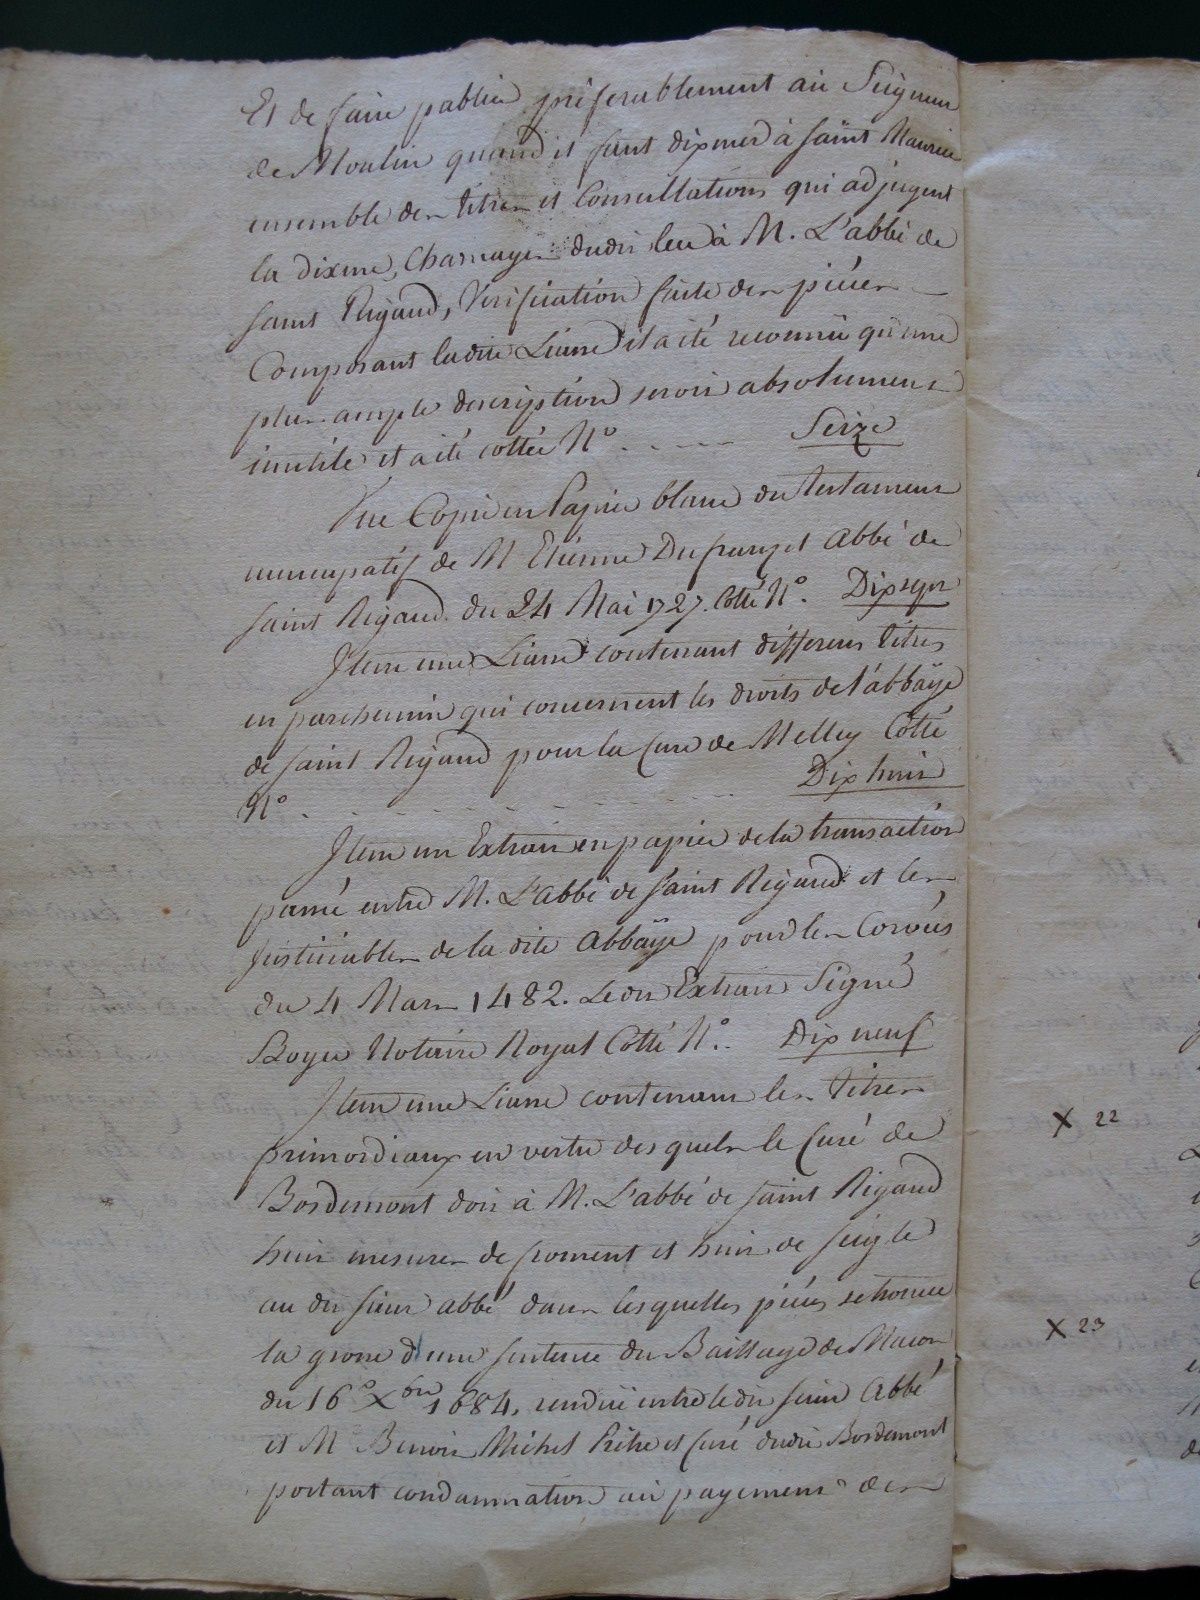 Et de faire publier préferablement au Seigneur
de Moulin quand il faut dixmer à saint Maurice
ensemble des titres et Consultations qui adjugent
la dixme, Charnayes dudit lieu à M. L'abbé de
saint Rigaud, Verification faite des pièces
Composant ladite Liasse il a été reconnu qu'une
plus ample description seroit absolument
inutile et a été cottée N° ..... Seize
Une Copie en Papier blanc du testament
nuncupatif de M Etienne Dufranget abbé de
saint Rigaud. du 24 Mai 1727. Cotté N°. Dix sept
Item une Liasse contenant differens titres
en parchemin qui concernent les droits de l'abbaÿe
de saint Rigaud pour la Cure de Melley Cotté
N° . . . . . . . . . . . Dix huit
Item un Extrait en papier de la transaction
passée entre M. L'abbé de saint Rigaud et les
Justiciables de la dite abbaÿe pour les Corvées
du 4 Mars 1482. Ledit Extrait Signé
Boyer Notaire Royal Cotté N°.. Dix neuf
Item une Liasse contenant les titres
primordiaux en vertu des quels le Curé de
Bosdemont doit à M. L'abbé de saint Rigaud
huit mesures de froment et huit de seigle
au dit sieur abbé dans lesquelles pièces se trouve
la grosse d'une sentence du Baillage de Macon
du 16° Xbre 1684, rendüe entre le dit sieur Abbé
et M Benoit Michel Prêtre et Curé dudit Bosdemont
portant condamnation au payement des
X 22
X 23